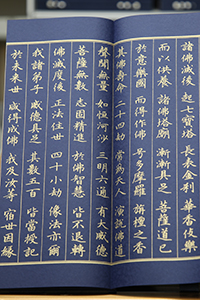 諸佛滅後 起七寶塔 長表金剎 華香伎樂
而以供養 諸佛塔廟 漸漸具足 菩薩道已
於意樂國 而得作佛 號多摩羅 栴檀之香
其佛壽命 二十四劫 常為天人 演說佛道
聲聞無量 如恒河沙 三明六通 有大威德
菩薩無數 志固精進 於佛智慧 皆不退轉
佛滅度後 正法住世 四十小劫 像法亦爾
我諸弟子 威德具足 其數五百 皆當授記
於未來世 咸得成佛 我及汝等 宿世因緣